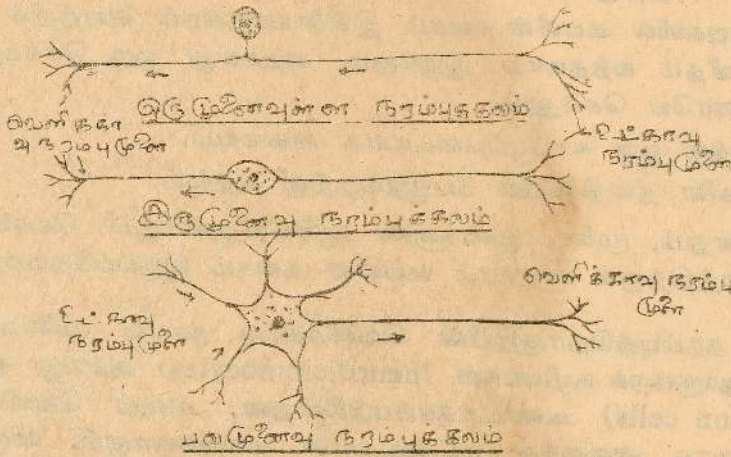 ஒருமுனைவுள்ள நரம்புக்கலம்
வெளிக்கா
வு நரம்புமுளை
உட்காவு
நரம்புமுளை
இருமுனைவு நரம்புக்கலம்
வெளிக்காவு நரம்பு
முளை
உட்காவு
நரம்புமுளை
பலமுனைவு நரம்புக்கலம்